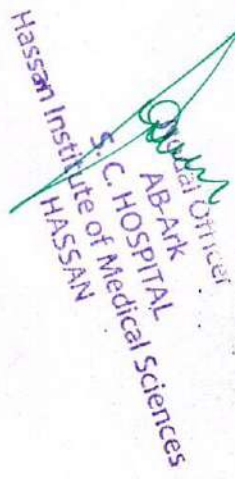 Nodal Officer
AB-Ark
S. C. HOSPITAL
Hassan Institute of Medical Sciences
HASSAN